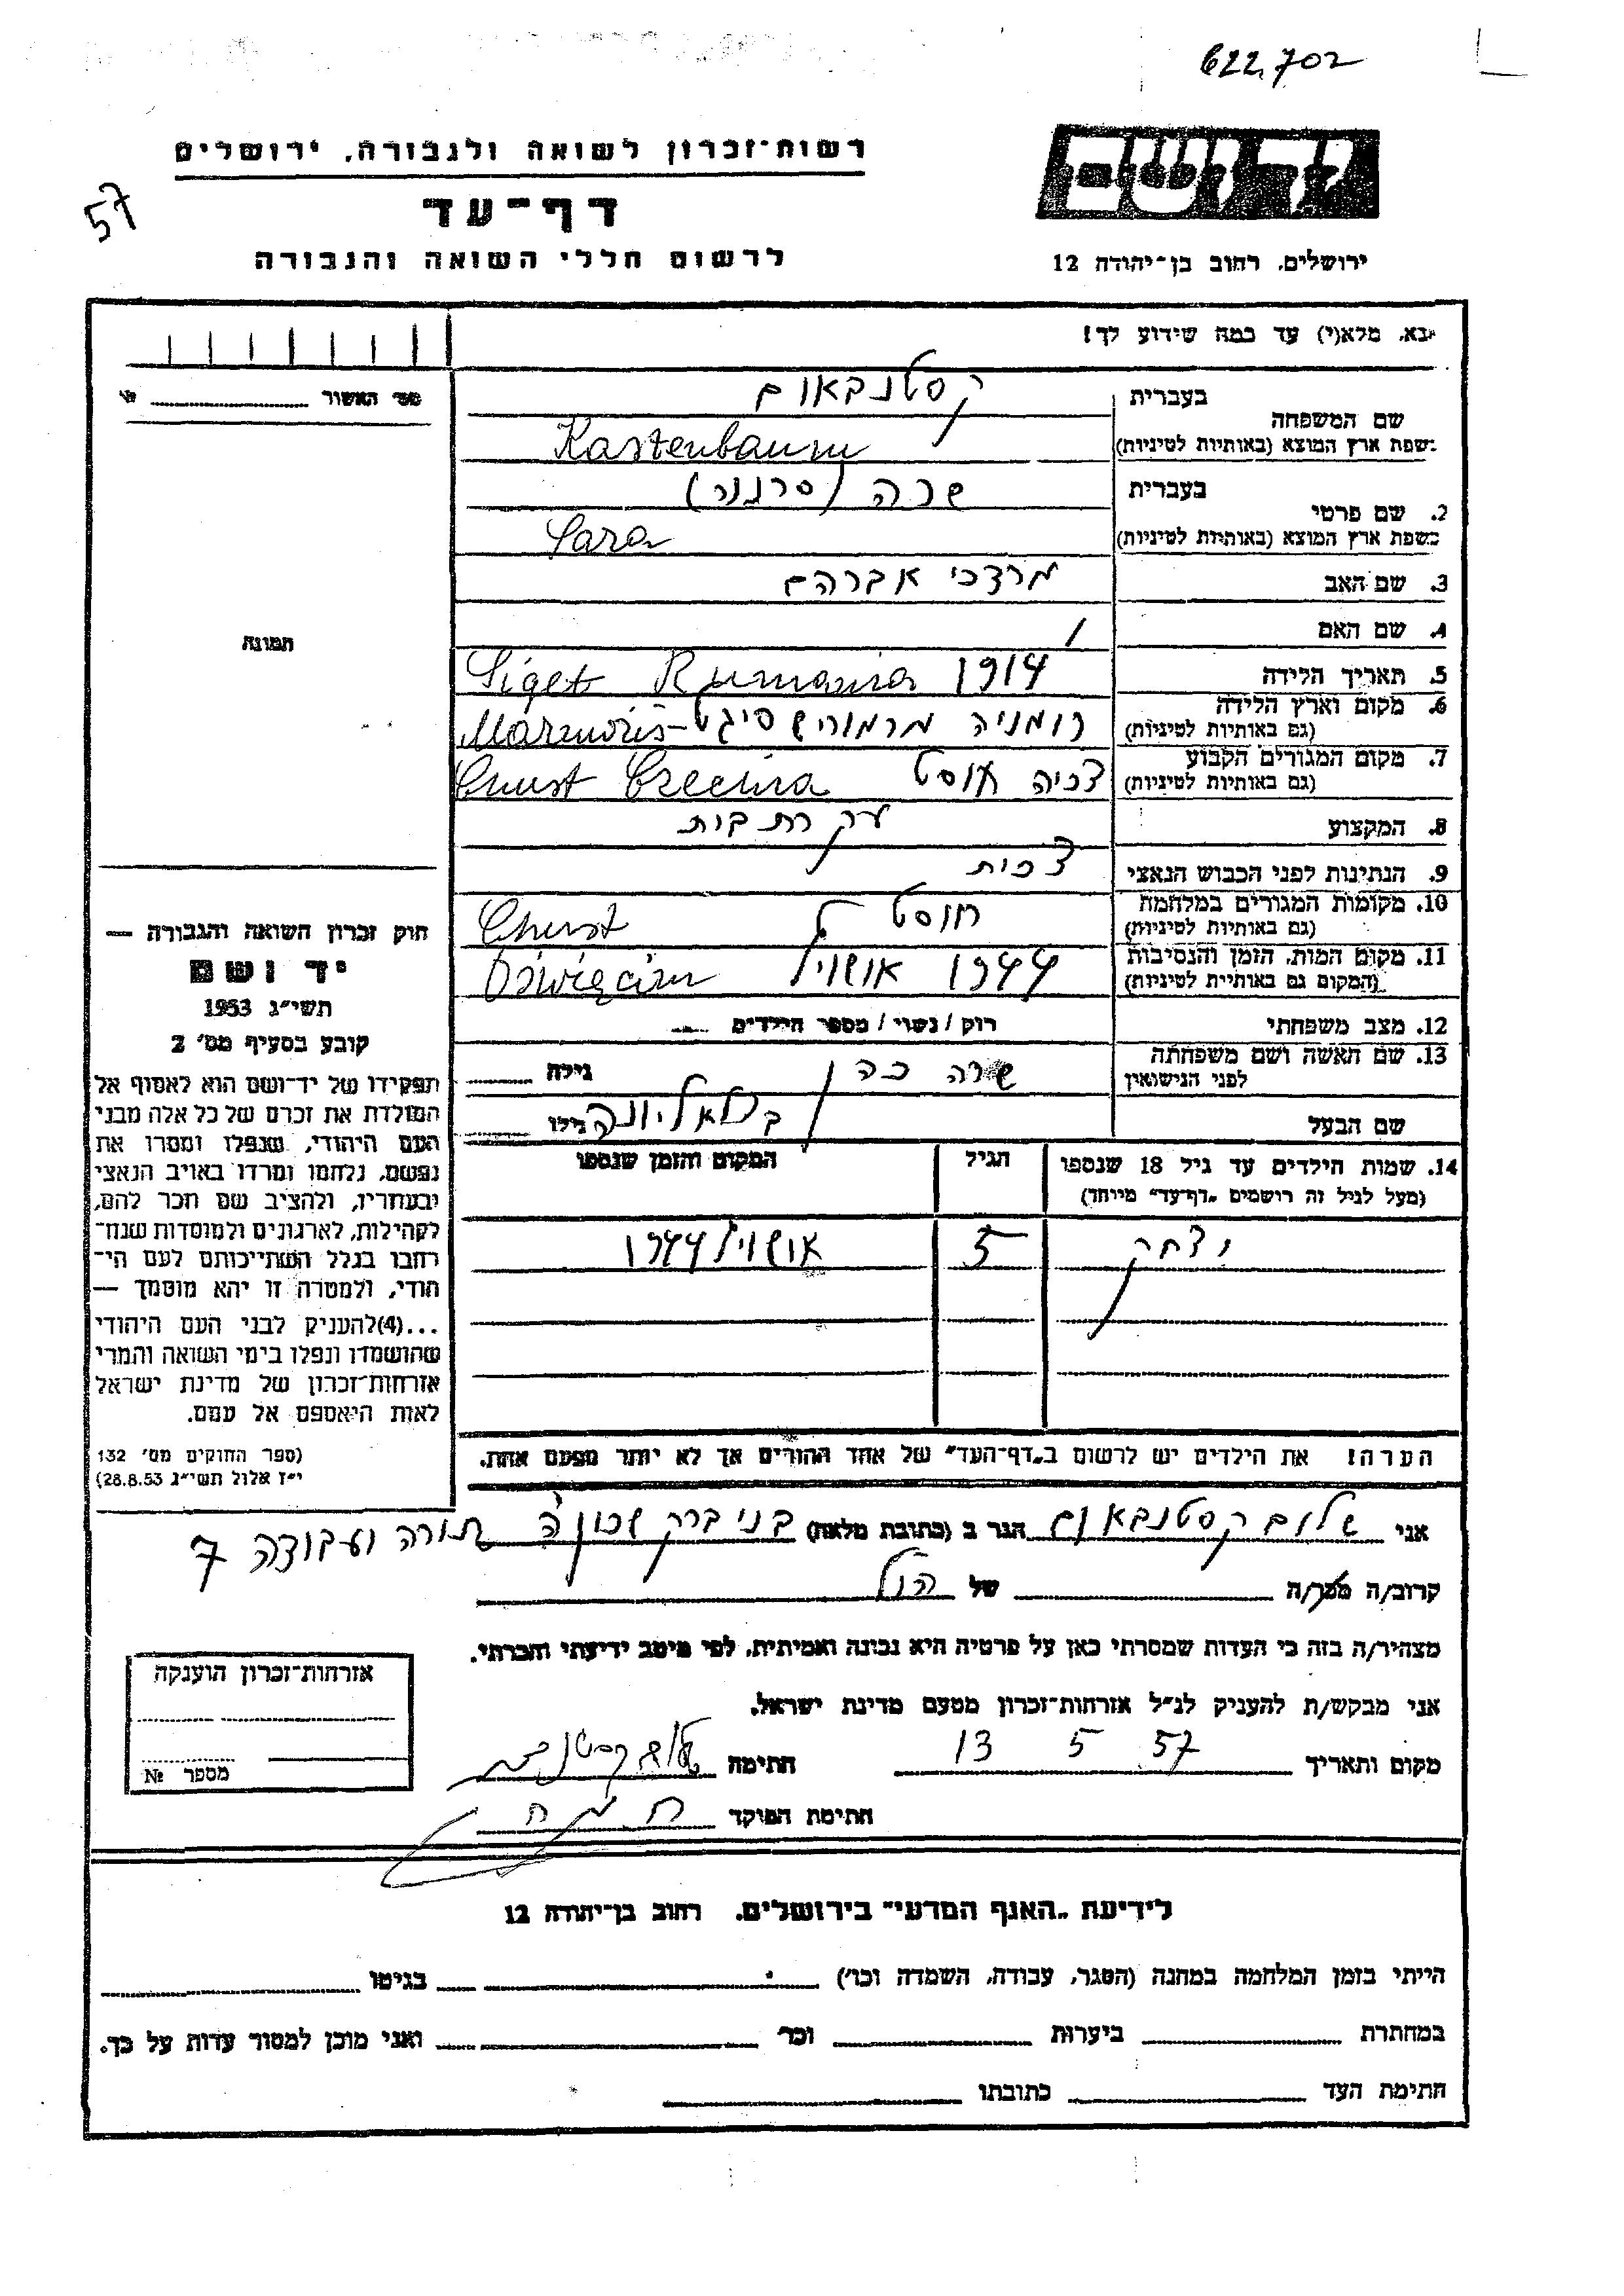 622,702
רשות־זכרון לשואה ולגבורה, ירושלים
57
דף־עד
לרשום חללי השואה והגבורה
ירושלים, רחוב בן־יהודה 12
נא, מלא(י) עד כמה שידוע לך!
מס׳ האשור № 
שם המשפחה בעברית קסטנבאום
בשפת ארץ המוצא (באותיות לטיניות) Kastenbaum
2. שם פרטי בעברית שרה
בשפת ארץ המוצא (באותיות לטיניות) Sara
3. שם האב מרדכי אברהם
4. שם האם /
תמונה
5. תאריך הלידה 1914 Rumania Siget
6. מקום וארץ הלידה (גם באותיות לטיניות) רומניה מרמורש סיגט - Marmoris
7. מקום המגורים הקבוע (גם באותיות לטיניות) צכיה חוסט Chust Czechia
8. המקצוע עקרת בית
9. הנתינות לפני הכבוש הנאצי צכית
10. מקומות המגורים במלחמה (גם באותיות לטיניות) חוסט Chust
11. מקום המות, הזמן והנסיבות (המקום גם באותיות לטיניות) 1944 אושויץ Oświęcim
12. מצב משפחתי רוק / נשוי / מספר הילדים
13. שם האשה ושם משפחתה לפני הנישואין שרה כץ גילה
שם הבעל גילו
14. שמות הילדים עד גיל 18 שנספו הגיל המקום והזמן שנספו
(מעל לגיל זה רושמים „דף־עד״ מיוחד)
יצחק 5 אושויץ 1944
הערה! את הילדים יש לרשום ב„דף־העד״ של אחד ההורים אך לא יותר מפעם אחת.
חוק זכרון השואה והגבורה —
יד ושם
תשי״ג 1953
קובע בסעיף מס׳ 2
תפקידו של יד־ושם הוא לאסוף אל
המולדת את זכרם של כל אלה מבני
העם היהודי, שנפלו ומסרו את
נפשם, נלחמו ומרדו באויב הנאצי
ובעוזריו, ולהציב שם וזכר להם,
לקהילות, לארגונים ולמוסדות שנח־
רבו בגלל השתייכותם לעם הי־
הודי, ולמטרה זו יהא מוסמך —
...(4) להעניק לבני העם היהודי
שהושמדו ונפלו בימי השואה והמרי
אזרחות־זכרון של מדינת ישראל
לאות היאספם אל עמם.
(ספר החוקים מס׳ 132
י״ז אלול תשי״ג 28.8.53)
אני שלום קסטנבאום הגר ב (כתובת מלאה) בני ברק תורה ועבודה 7
קרוב/ה מכר/ה של הנ״ל
מצהיר/ה בזה כי העדות שמסרתי כאן על פרטיה היא נכונה ואמיתית, לפי מיטב ידיעתי והכרתי.
אני מבקש/ת להעניק לנ״ל אזרחות־זכרון מטעם מדינת ישראל.
מקום ותאריך 13 5 57 חתימה
חתימת הפוקד
אזרחות־זכרון הוענקה
מספר №
לידיעת „האגף המדעי״ בירושלים, רחוב בן־יהודה 12
הייתי בזמן המלחמה במחנה (הסגר, עבודה, השמדה וכו׳) בגיטו
במחתרת ביערות וכר ואני מוכן למסור עדות על כך.
חתימת העד כתובתו